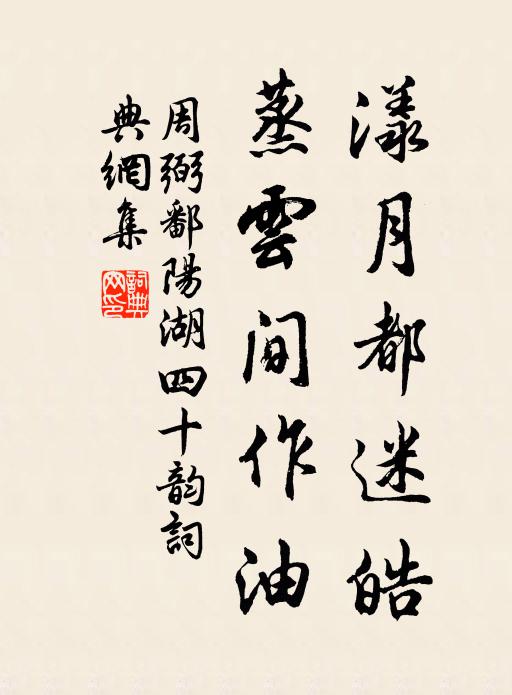 漾月都迷皓
蒸雲間作油
周弼鄱陽湖四十韵詞
典網集
詞典網印